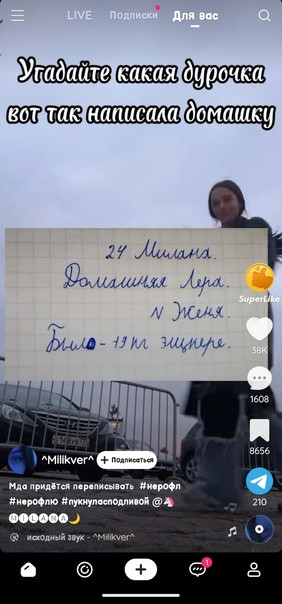 LIVE Подписки Для вас
Угадайте какая дурочка
вот так написала домашку
24 Милана.
Домашняя Лера.
N Женя.
Было - 19 кг эщпере.
SuperLike
38K
1608
8656
210
^Milikver^ + Подписаться
Мда придётся переписывать #нерофл
#нерофлю #пукнуласподливой @🦄
🅜🅘🅛🅐🅝🅐🌙
исходный звук - ^Milikver^
1